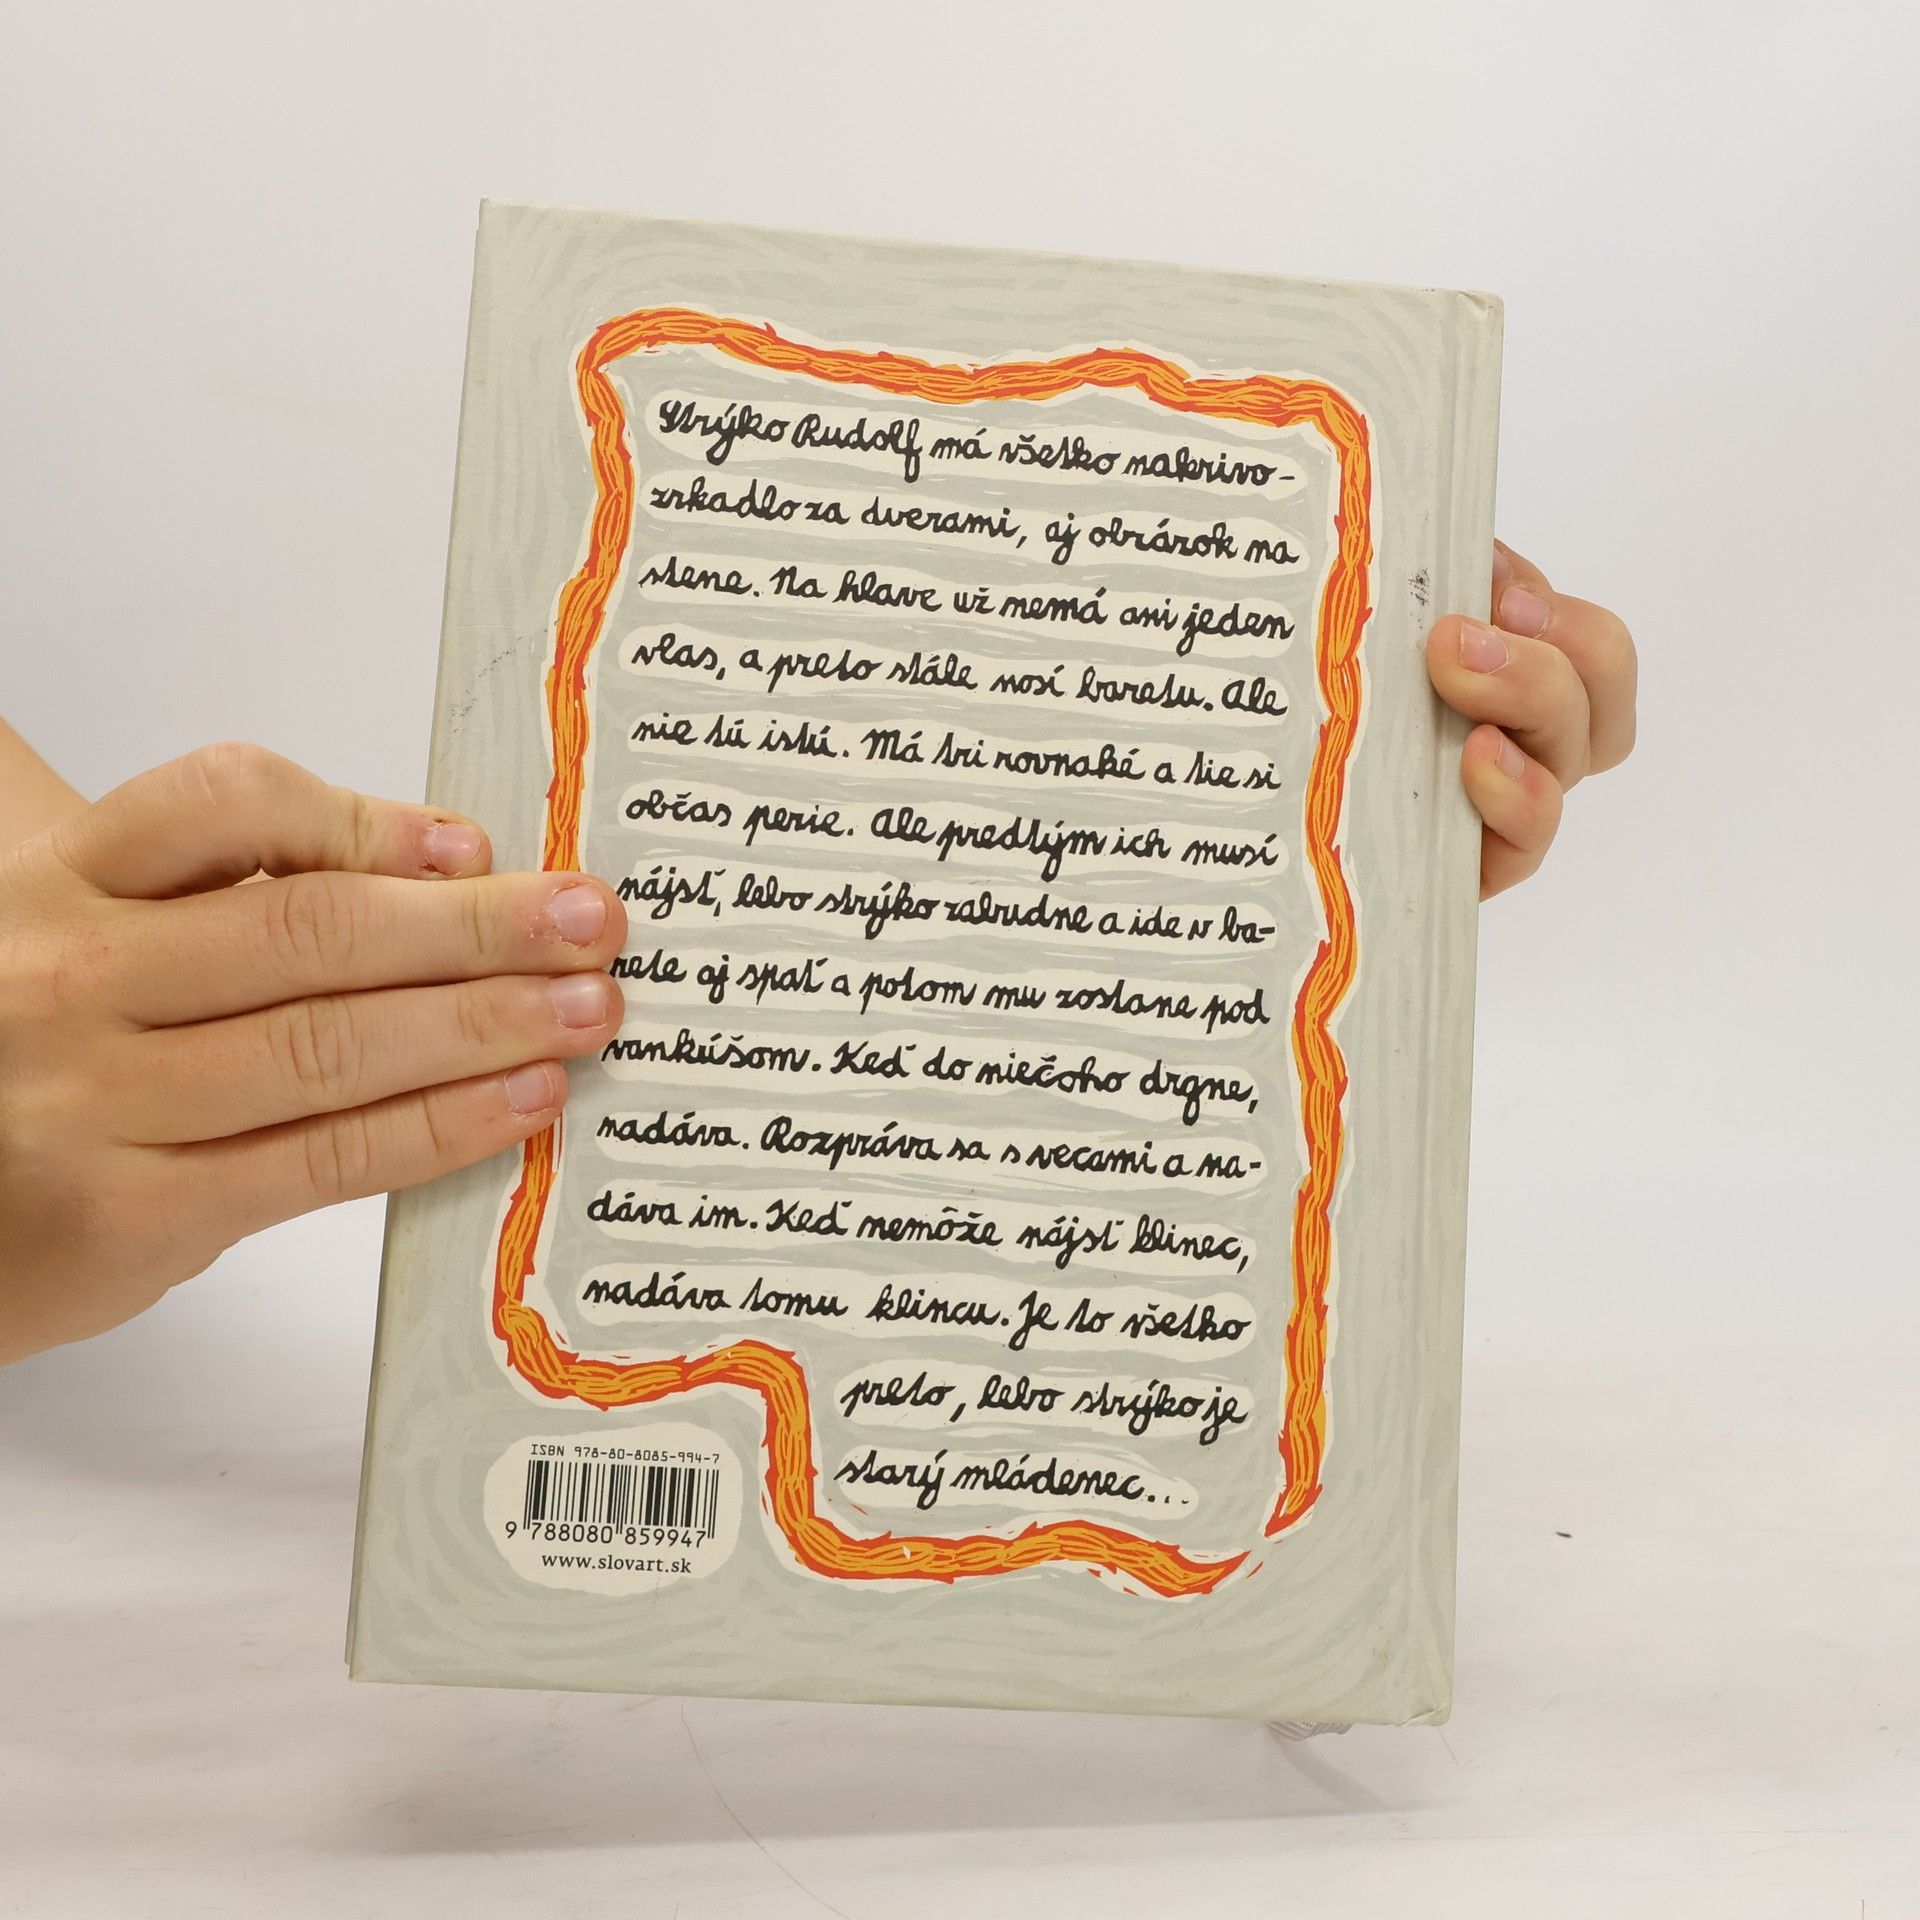 Strýko Rudolf má všetko nakrivo -
zrkadlo za dverami, aj obrázok na
stene. Na hlave už nemá ani jeden
vlas, a preto stále nosí baretu. Ale
nie tú istú. Má tri rovnaké a tie si
občas perie. Ale predtým ich musí
nájsť, lebo strýko zabudne a ide v ba-
rete aj spať a potom mu zostane pod
vankúšom. Keď do niečoho drgne,
nadáva. Rozpráva sa s vecami a na-
dáva im. Keď nemôže nájsť klinec,
nadáva tomu klincu. Je to všetko
preto, lebo strýko je
starý mládenec...
ISBN 978-80-8085-994-7
9 788080 859947
www.slovart.sk